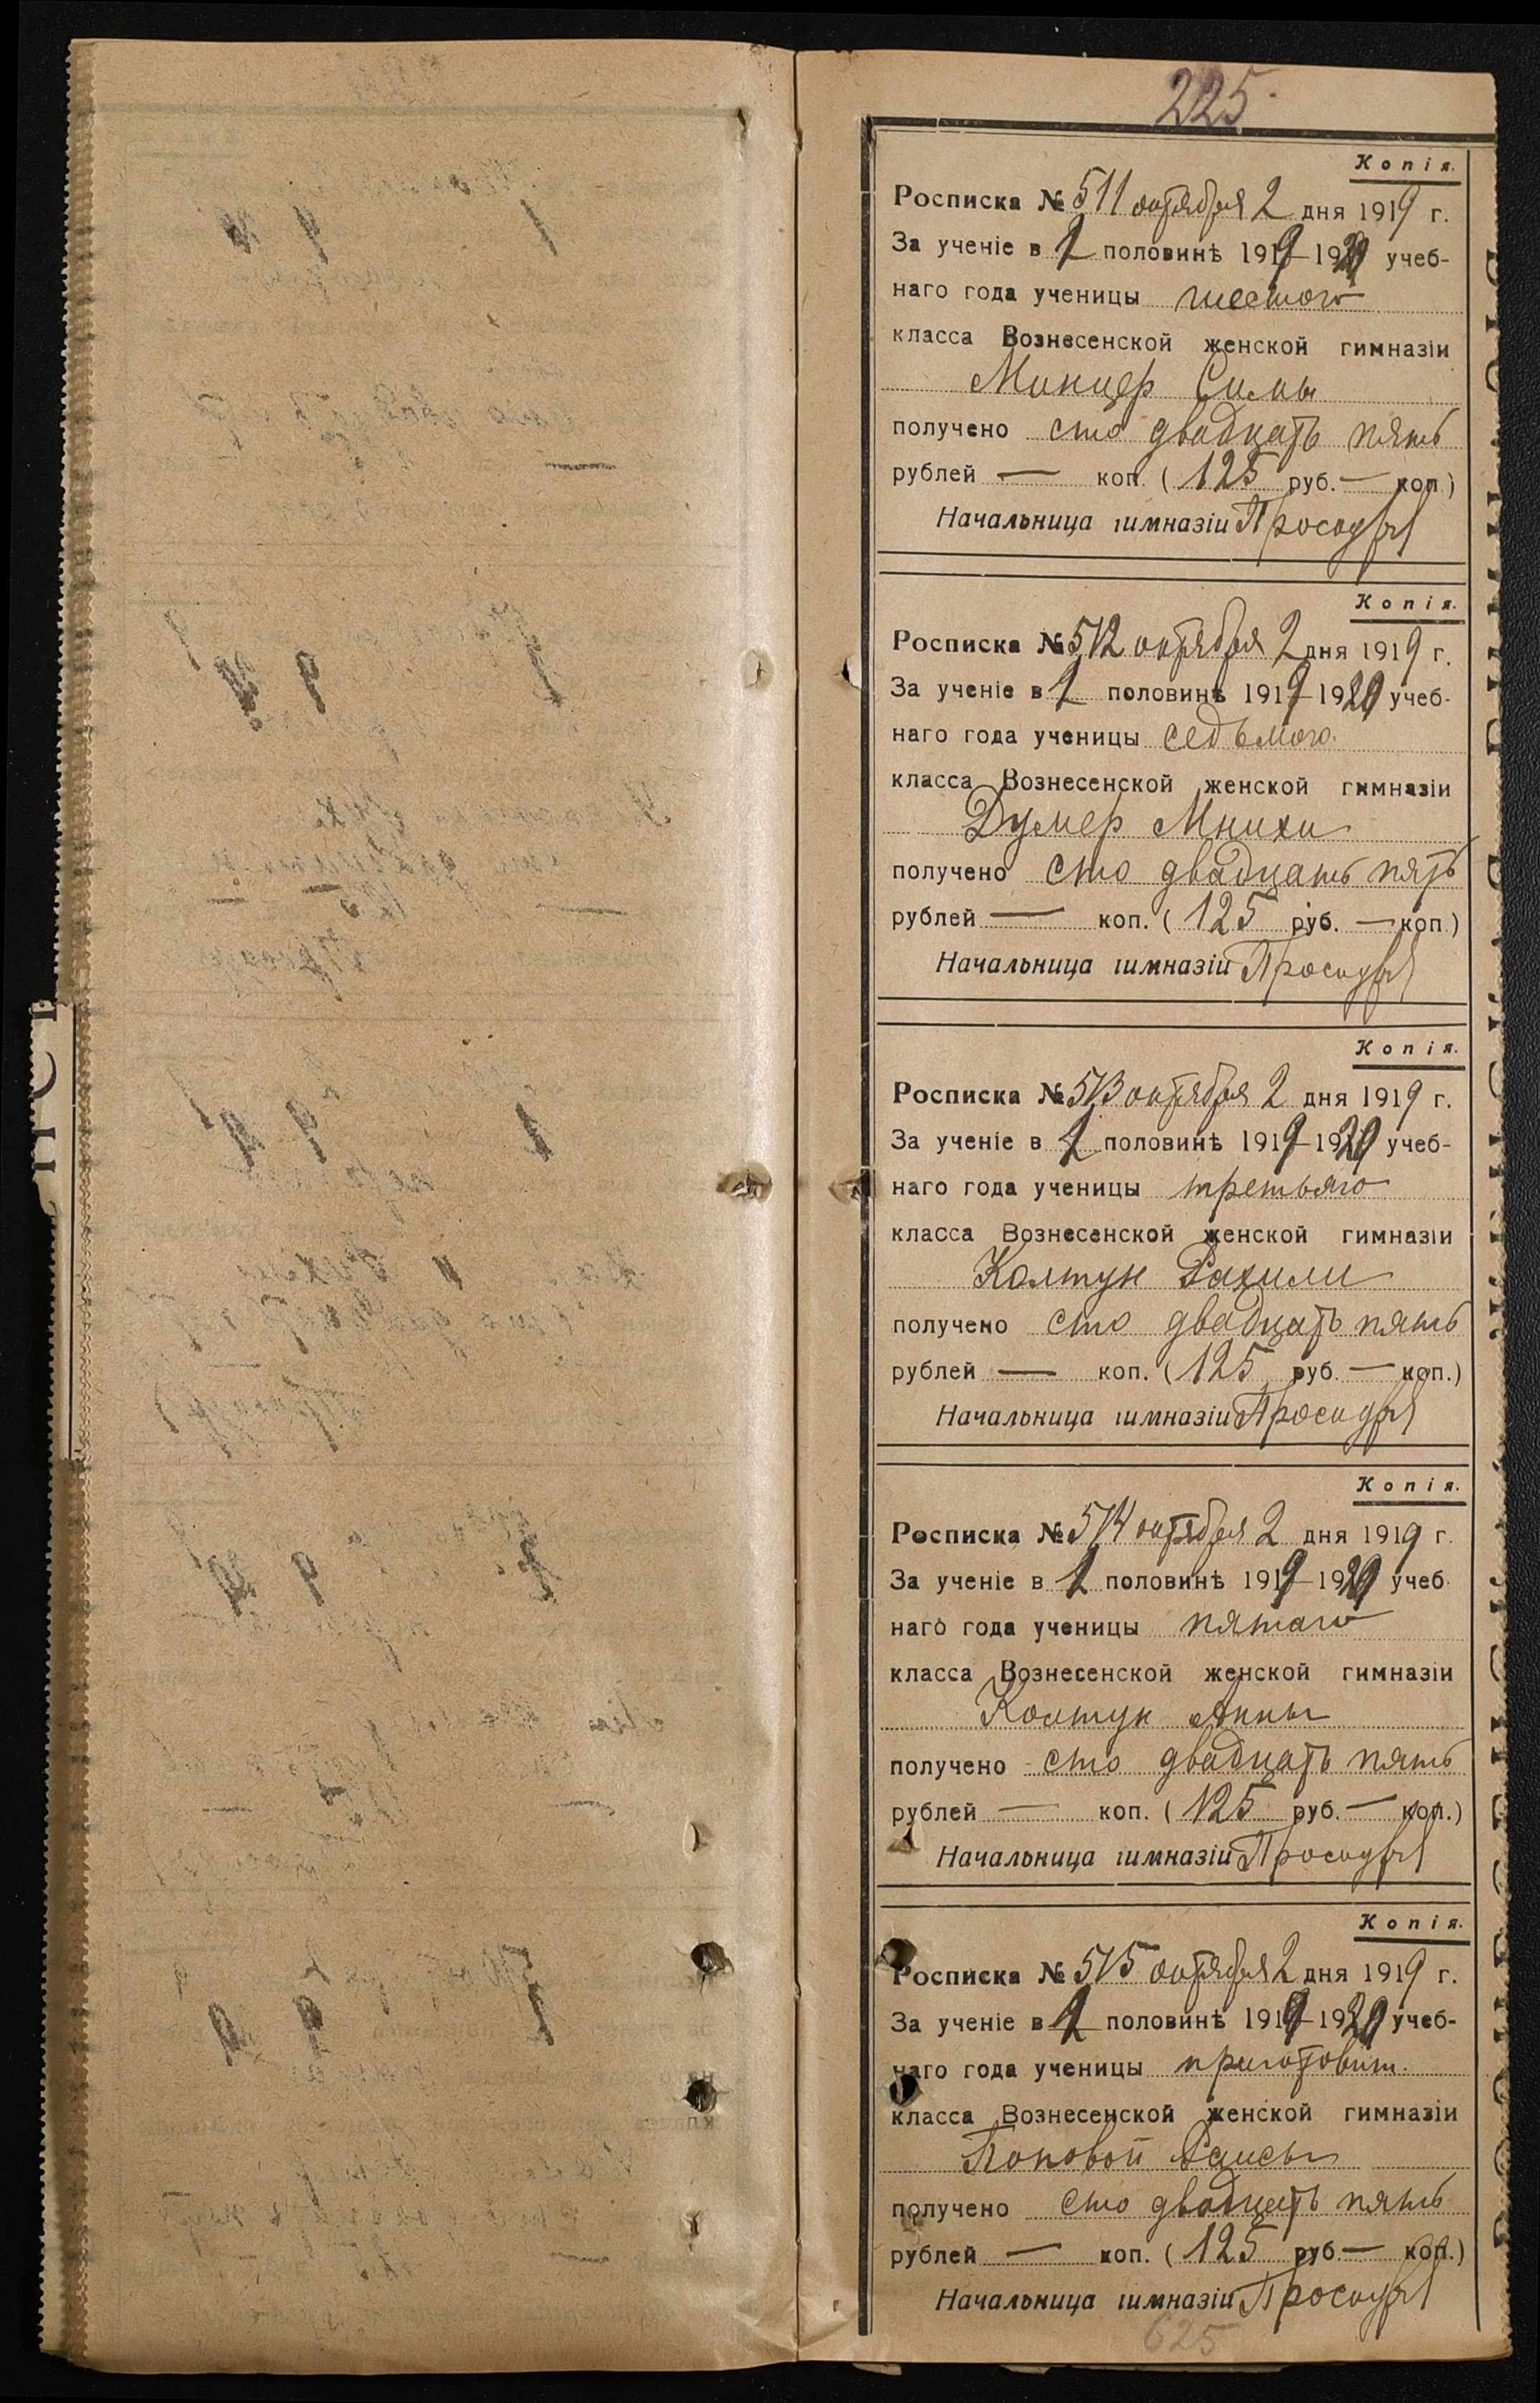 225.
Копія.
Росписка № 511 октября 2 дня 1919 г.
За ученіе в 1 половинѣ 1919–1920 учеб-
наго года ученицы шестого
класса Вознесенской женской гимназіи
Минцер Симы
получено сто двадцать пять
рублей — коп. (125 руб. — коп.)
Начальница гимназіи
Копія.
Росписка № 512 октября 2 дня 1919 г.
За ученіе в 1 половинѣ 1919–1920 учеб-
наго года ученицы седьмого
класса Вознесенской женской гимназіи
Думер Мнихи
получено сто двадцать пять
рублей — коп. (125 руб. — коп.)
Начальница гимназіи
Копія.
Росписка № 513 октября 2 дня 1919 г.
За ученіе в 1 половинѣ 1919–1920 учеб-
наго года ученицы третьяго
класса Вознесенской женской гимназіи
Колтун Рахили
получено сто двадцать пять
рублей — коп. (125 руб. — коп.)
Начальница гимназіи
Копія.
Росписка № 514 октября 2 дня 1919 г.
За ученіе в 1 половинѣ 1919–1920 учеб-
наго года ученицы пятаго
класса Вознесенской женской гимназіи
Колтун Анны
получено сто двадцать пять
рублей — коп. (125 руб. — коп.)
Начальница гимназіи
Копія.
Росписка № 515 октября 2 дня 1919 г.
За ученіе в 1 половинѣ 1919–1920 учеб-
наго года ученицы приготовит.
класса Вознесенской женской гимназіи
Поповой Раисы
получено сто двадцать пять
рублей — коп. (125 руб. — коп.)
Начальница гимназіи
625